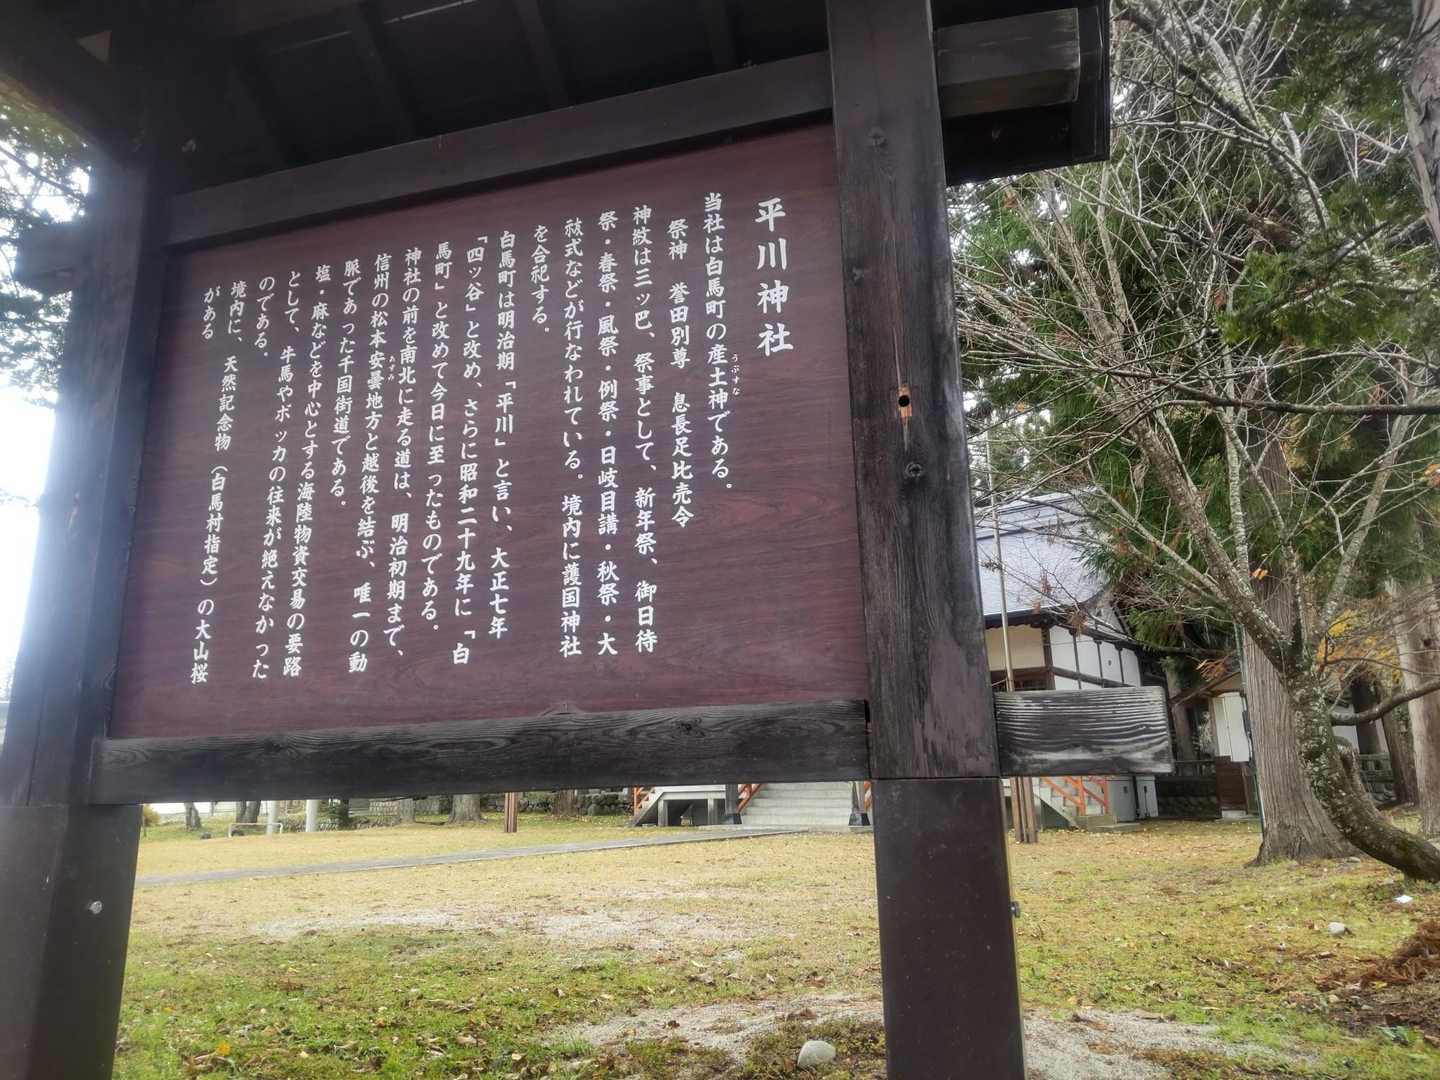 平川神社
当社は白馬町の産土神である。
うぶすな
祭神　誉田別尊　息長足比売令
神紋は三ッ巴、祭事として、新年祭、御日待
祭・春祭・風祭・例祭・日岐目講・秋祭・大
祓式などが行なわれている。境内に護国神社
を合祀する。
白馬町は明治期「平川」と言い、大正七年
「四ッ谷」と改め、さらに昭和二十九年に「白
馬町」と改めて今日に至ったものである。
神社の前を南北に走る道は、明治初期まで、
信州の松本安曇地方と越後を結ぶ、唯一の動
あずみ
脈であった千国街道である。
塩・麻などを中心とする海陸物資交易の要路
として、牛馬やボッカの往来が絶えなかった
のである。
境内に、天然記念物（白馬村指定）の大山桜
がある